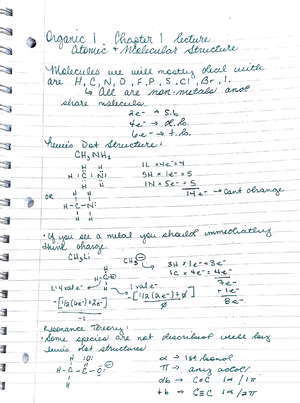 Organic 1 Chapter 1 lecture
Atomic + Molecular Structure
Molecules we will mostly deal with
are H, C, N, O, F, P, S, Cl, Br, I.
↳ All are non-metals and
share molecules.
2e⁻ → s.b.
4e⁻ → d.b.
6e⁻ → t.b.
Lewis Dot Structure:
CH₃NH₂
H H
H : C : N
H H
1C × 4e⁻ = 4
5H × 1e⁻ = 5
1N × 5e⁻ = 5
14e⁻ → Cant change
or
H H
H - C - N
H H
• If you see a metal you should immediately
think charge
CH₃Li
CH₃⁻
3H × 1e⁻ = 3e⁻
1C × 4e⁻ = 4e⁻
7e⁻
+ 1e⁻
8e⁻
H
H - C
H
1 val e⁻
-[1/2(6e⁻)+2e⁻]
-1
Resonance Theory:
• Some species are not described well by
lewis dot structures
H :O:
H - C - C - O
H
α → 1st bond
π → any addtl
db → C=C 1α / 1π
tb → C≡C 1α / 2π